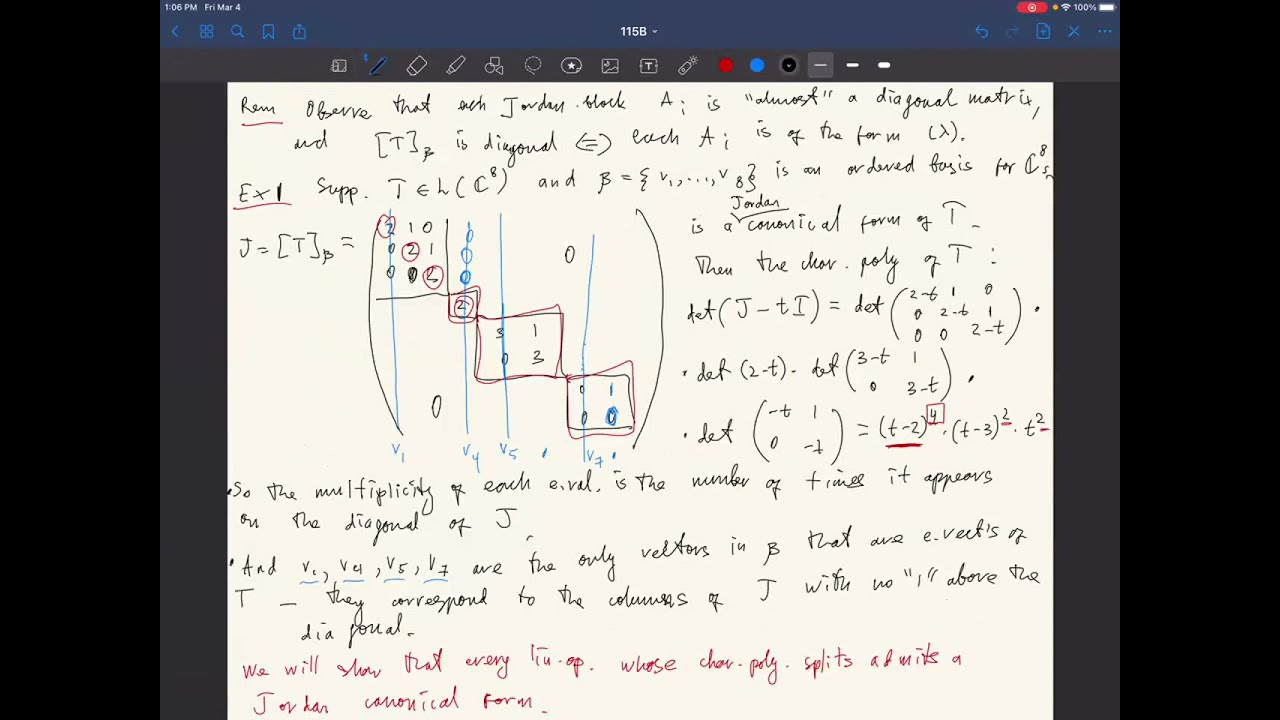 1:06 PM Fri Mar 4
100%
115B
Rem Observe that each Jordan block A_i is "almost" a diagonal matrix,
and [T]_β is diagonal ⟺ each A_i is of the form (λ).
Ex 1 Supp. T ∈ L(ℂ^8) and β = {v_1, ..., v_8} is an ordered basis for ℂ^8 s.
J = [T]_β =
2 1 0 0
0 2 1 0 0
0 0 2 0
2
3 1
0 3
0 1
0 0 0
v_1 v_4 v_5 . v_7 .
is a Jordan canonical form of T.
Then the char. poly of T:
det(J - tI) = det ( 2-t 1 0
0 2-t 1
0 0 2-t ) ·
· det(2-t) · det ( 3-t 1
0 3-t ) ·
· det ( -t 1
0 -t ) = (t-2)^4 · (t-3)^2 · t^2
• So the multiplicity of each e.val. is the number of times it appears
on the diagonal of J
• And v_1, v_4, v_5, v_7 are the only vectors in β that are e.vect's of
T – they correspond to the columns of J with no "1" above the
diagonal.
We will show that every lin. op. whose char. poly. splits admits a
Jordan canonical form.